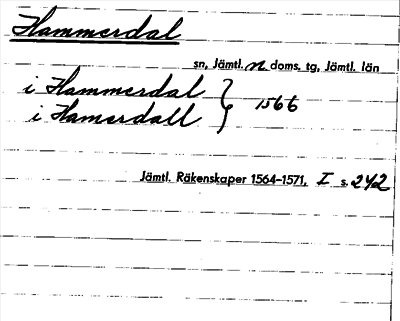 Hammerdal
sn, Jämtl. n doms. tg, Jämtl. län
i Hammerdal } 1566
i Hamerdall
Jämtl. Räkenskaper 1564-1571, I s. 242